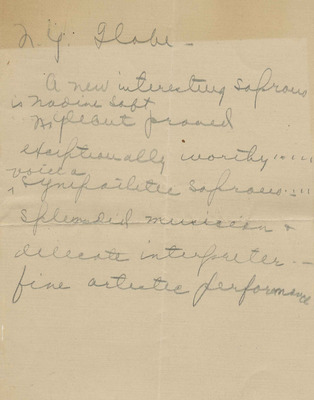 N.Y. Globe -
A new interesting soprano
is Nadine
proved
exceptionally worthy .....
voice a
sympathetic soprano ....
splendid musician &
delicate interpreter. -
fine artistic performance